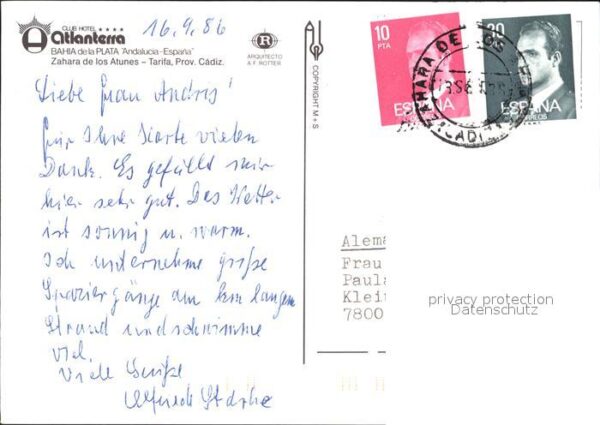 16.9.86
CLUB HOTEL ****
Atlanterra
BAHIA de la PLATA "Andalucia-España"
Zahara de los Atunes – Tarifa, Prov. Cádiz.
R
ARQUITECTO
A.F. ROTTER
COPYRIGHT M + S
10
PTA
ESPAÑA
30
ESPAÑA
CORREOS
ZAHARA DE LOS
CADIZ
Liebe Frau Andres!
für Ihre Karte vielen
Dank. Es gefällt mir
hier sehr gut. Das Wetter
ist sonnig u. warm.
Ich unternehme große
Spaziergänge am km langen
Strand und schwimme
viel.
Viele Grüße
Alfred
Alema
Frau
Paula
Klei
7800
privacy protection
Datenschutz